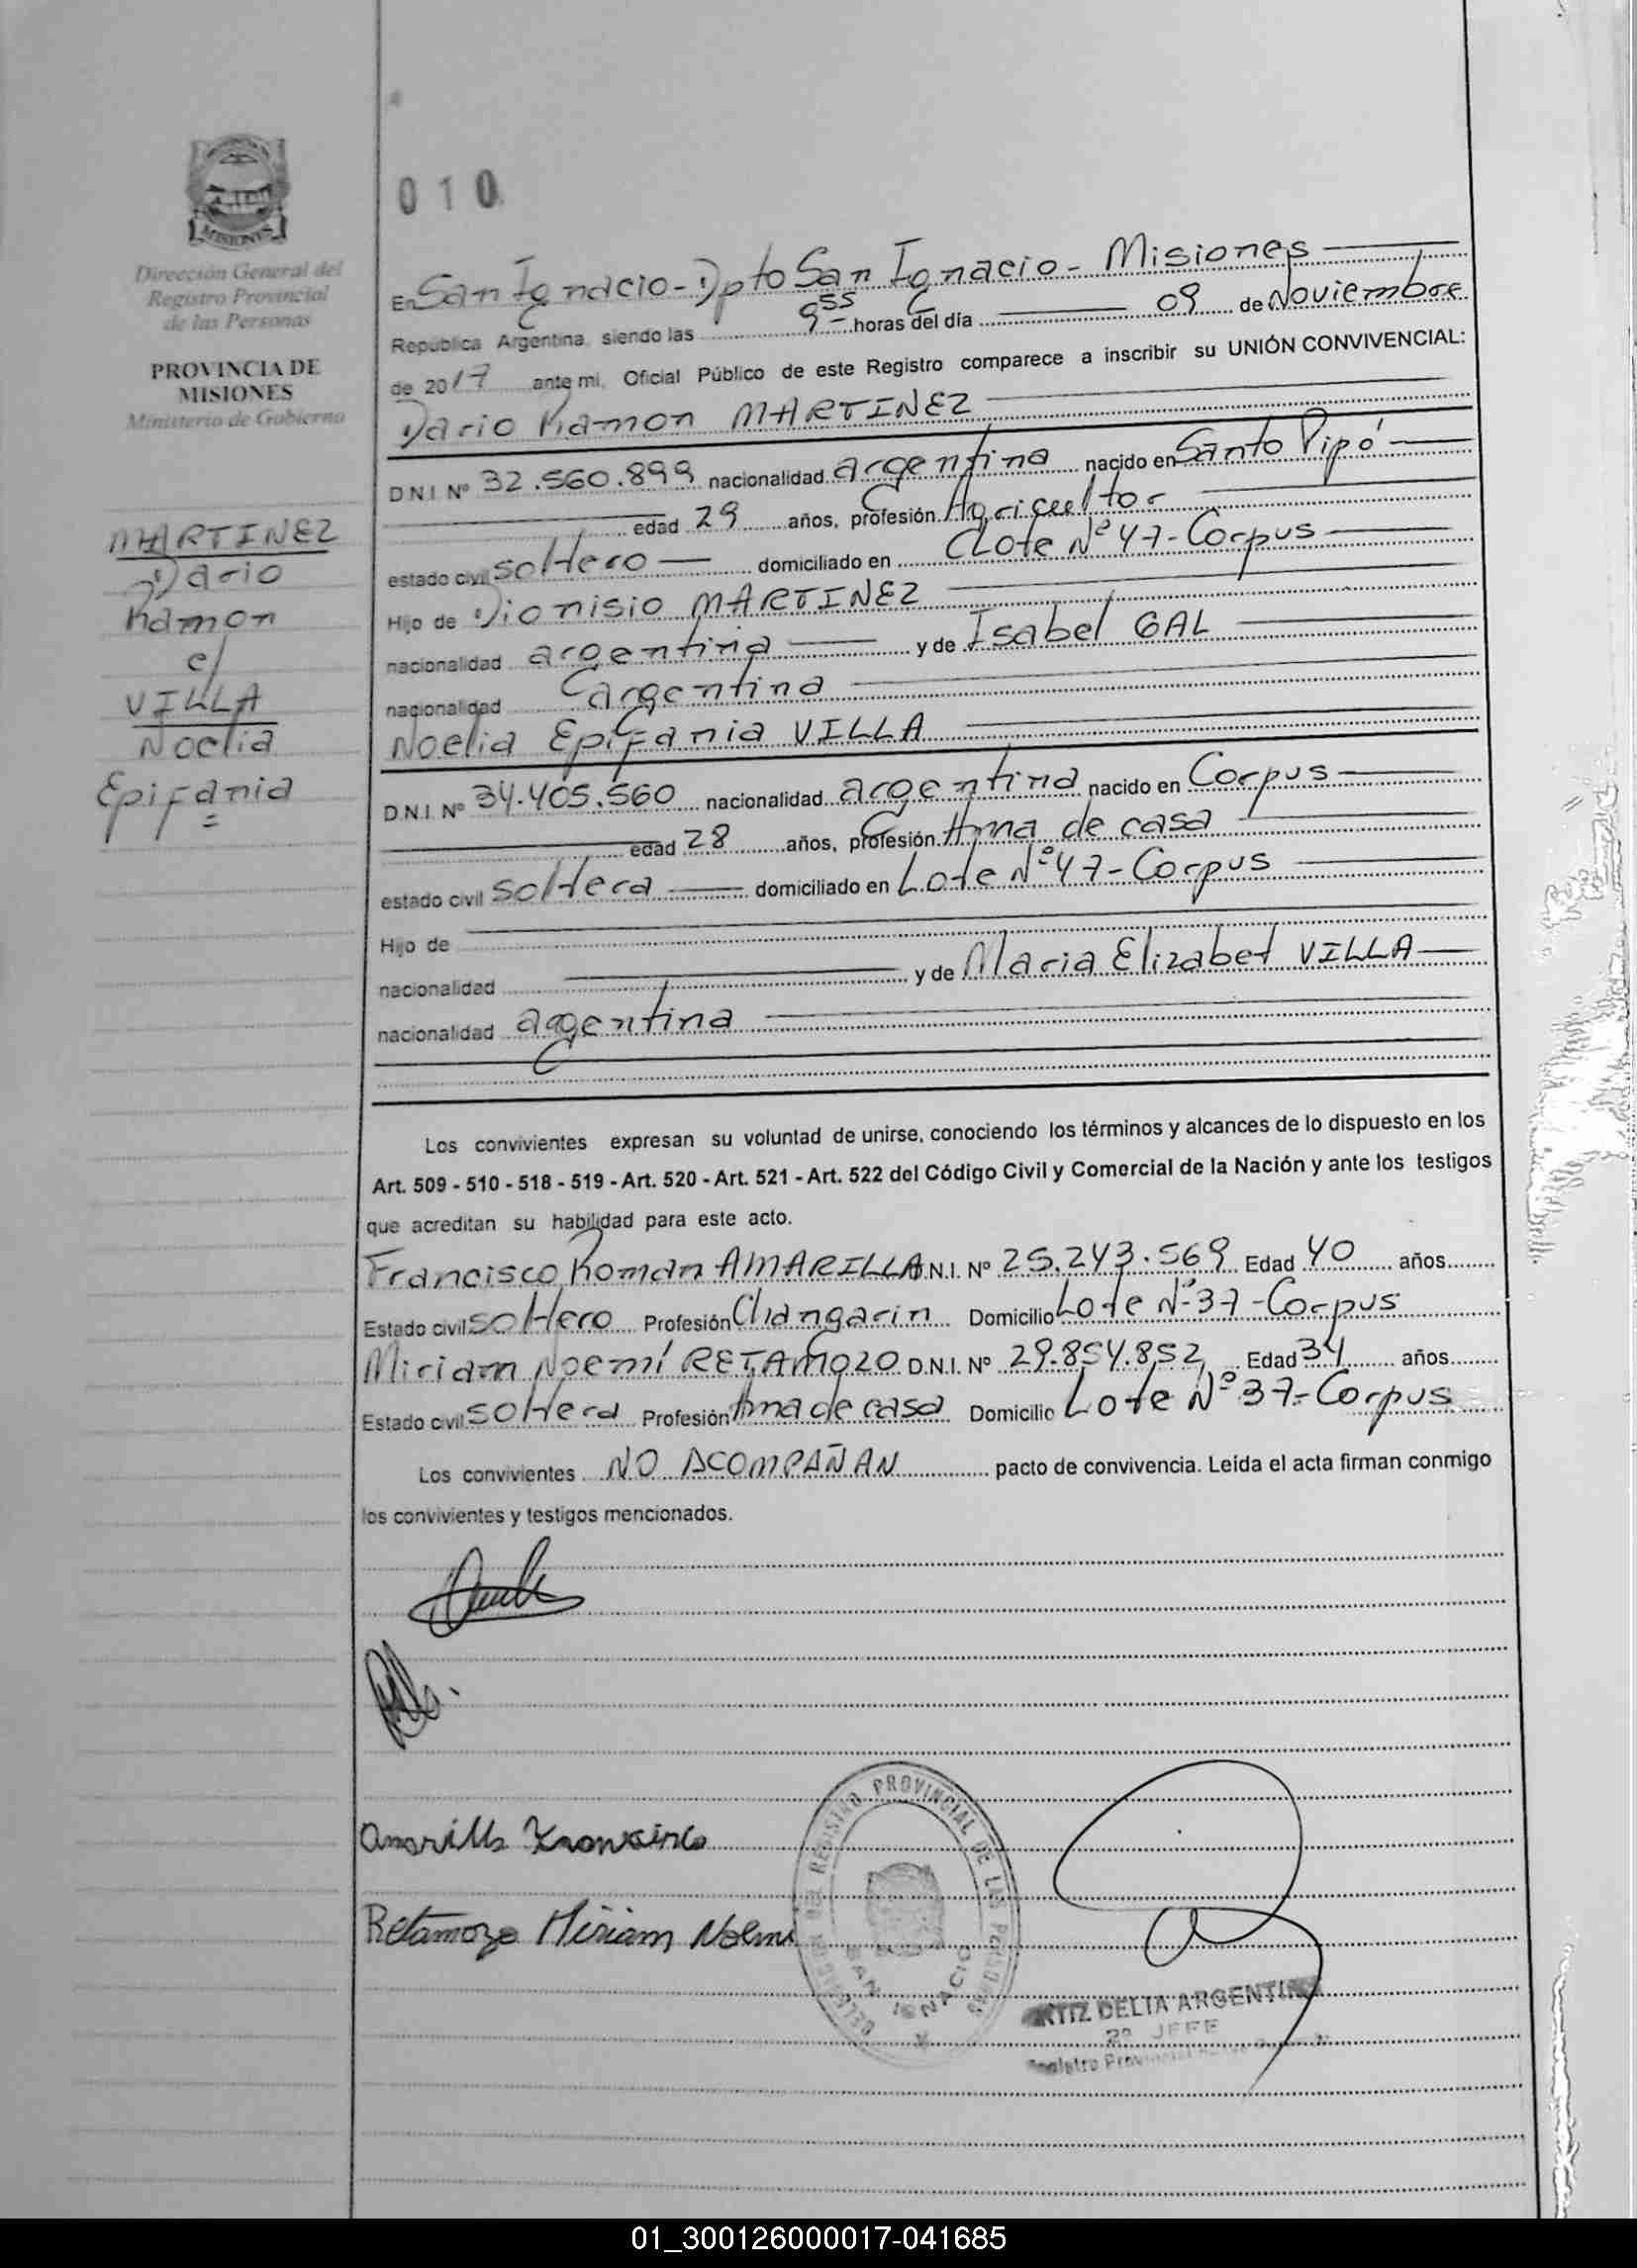 010
MISIONES
Dirección General del
Registro Provincial
de las Personas
PROVINCIA DE
MISIONES
Ministerio de Gobierno
MARTINEZ
Dario
Ramon
c/
VILLA
Noelia
Epifania
En San Ignacio - Dpto San Ignacio - Misiones
República Argentina, siendo las 9 55 horas del día 09 de Noviembre
de 2017 ante mi, Oficial Público de este Registro comparece a inscribir su UNIÓN CONVIVENCIAL:
Dario Ramon MARTINEZ
D.N.I. Nº 32.560.899 nacionalidad argentina nacido en Santo Pipó
edad 29 años, profesión Agricultor
estado civil soltero domiciliado en Lote Nº 47 - Corpus
Hijo de Dionisio MARTINEZ
nacionalidad argentina y de Isabel GAL
nacionalidad argentina
Noelia Epifania VILLA
D.N.I. Nº 34.405.560 nacionalidad argentina nacido en Corpus
edad 28 años, profesión Ama de casa
estado civil soltera domiciliado en Lote Nº 47 - Corpus
Hijo de
nacionalidad y de Maria Elizabet VILLA
nacionalidad argentina
Los convivientes expresan su voluntad de unirse, conociendo los términos y alcances de lo dispuesto en los
Art. 509 - 510 - 518 - 519 - Art. 520 - Art. 521 - Art. 522 del Código Civil y Comercial de la Nación y ante los testigos
que acreditan su habilidad para este acto.
Francisco Roman AMARILLA D.N.I. Nº 25.243.569 Edad 40 años
Estado civil soltero Profesión Changarin Domicilio Lote Nº 37 - Corpus
Miriam Noemí RETAMOZO D.N.I. Nº 29.854.852 Edad 34 años
Estado civil soltera Profesión Ama de casa Domicilio Lote Nº 37 - Corpus
Los convivientes NO ACOMPAÑAN pacto de convivencia. Leída el acta firman conmigo
los convivientes y testigos mencionados.
Amarilla
Retamozo Miriam Noemi
REGISTRO PROVINCIAL DE LAS PERSONAS
SAN IGNACIO
DELIA ARGENTINA
2º JEFE
Registro Provincial
01_300126000017-041685